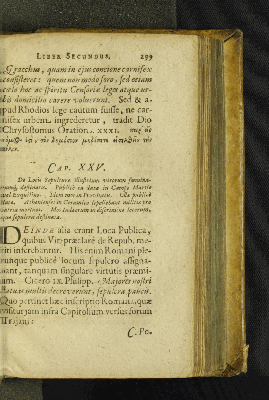 LIBER SECUNDUS. 299
Gracchus, quam in ejus concione carnifex
consisteret: quem non modo foro, sed etiam
cœlo hoc ac spiritu Censoriæ leges atque ur-
bis domicilio carere voluerunt. Sed & a-
pud Rhodios lege cautum fuisse, ne car-
nifex urbem ingrederetur, tradit Dio
Chrysostomus Oration. XXXI.
CAP. XXV.
De Locis Sepulturæ illustrium virorum
destinatis. Publicè ea data in Campo Martio
vel Exquiliis. Item eam in Provinciis.
Athenienses in Ceramico sepeliebant milites pro
patria mortuos.
que sepultura destinata.
DEINDE alia erant Loca Publica,
quibus Viri præclarè de Repub. me-
riti inferebantur. His enim Romani ple-
runque publicè locum sepulcro assigna-
bant, tanquam singulare virtutis præmi-
um. Cicero IX. Philipp. Majores nostri
statuas multis decreverunt, sepulcra paucis.
Quò pertinet hæc inscriptio Romana quæ
visitur jam infra Capitolium versus forum
Trajani:
C. Po.